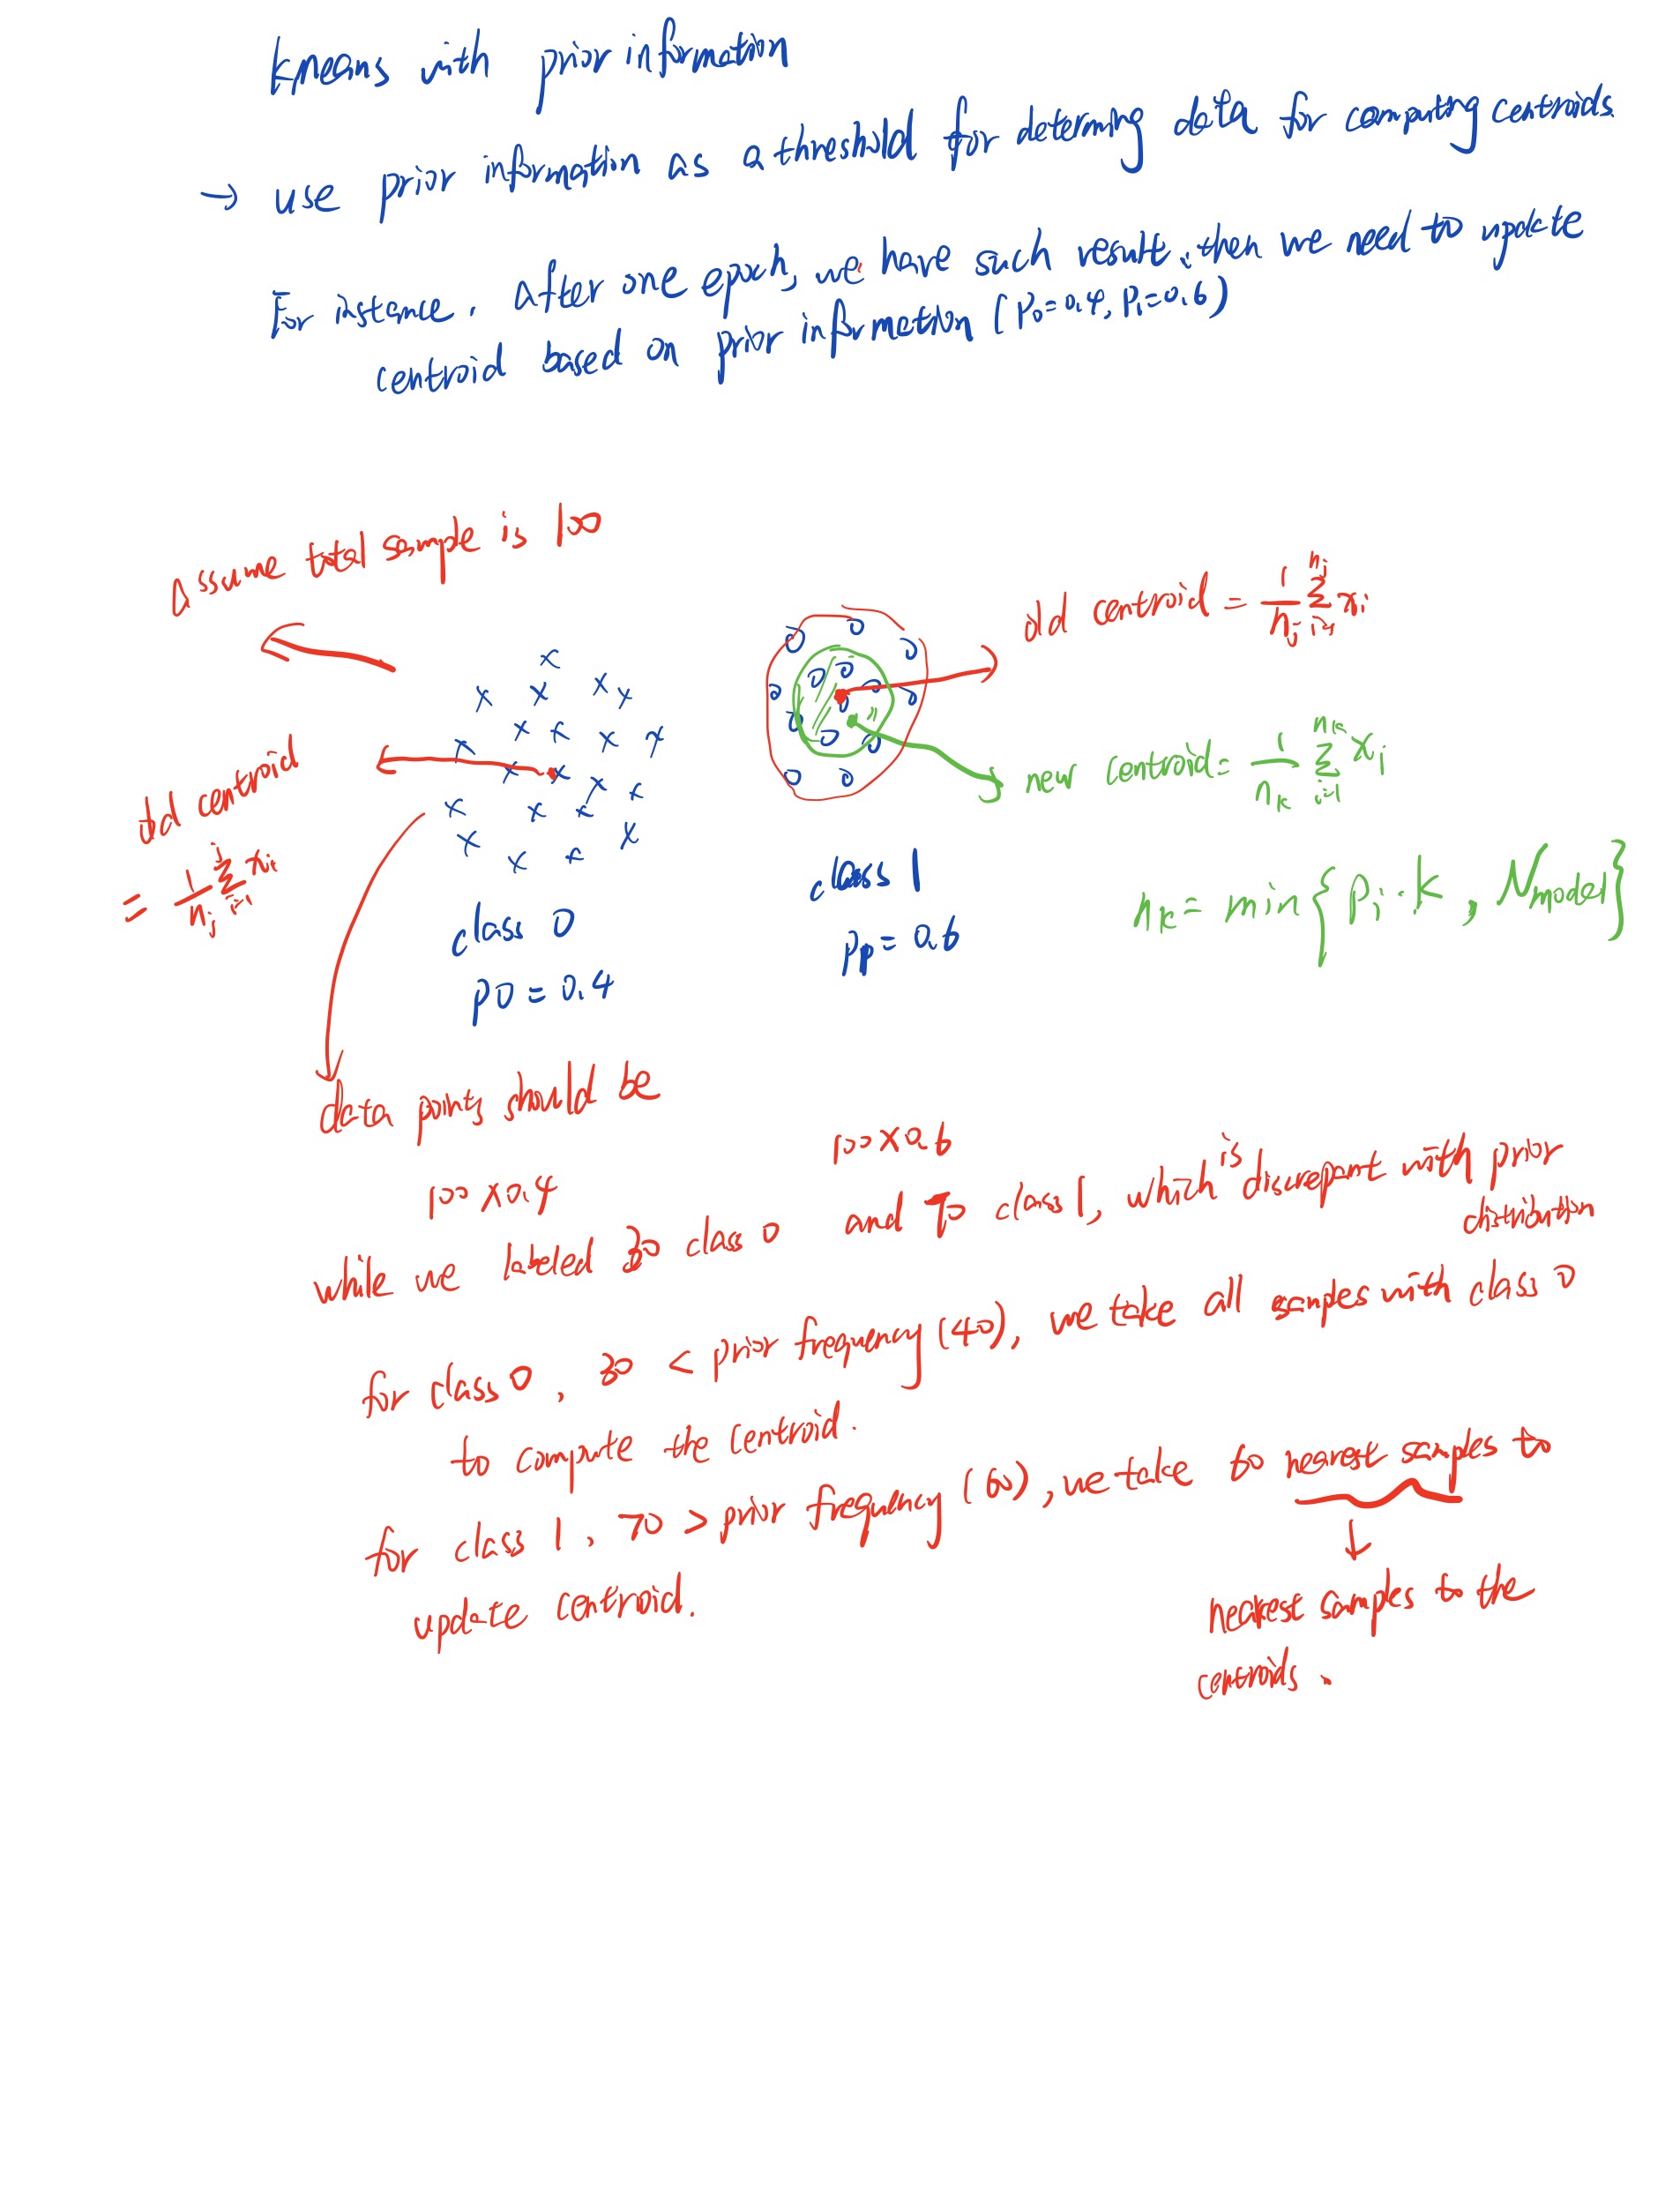 kmeans with prior information
→ use prior information as a threshold for determing data for computing centroids.
For instance, after one epoch, we have such result, then we need to update
centroid based on prior information (P₀=0.4, P₁=0.6)
Assume total sample is 100
old centroid = 1/nⱼ Σ xᵢ
new centroid = 1/nₖ Σ xᵢ
old centroid
= 1/nⱼ Σ xᵢ
nₖ = min{Pᵢ·k, Nmodel}
class 0
P0 = 0.4
class 1
Pp = 0.6
data points should be
100 x 0.4
100 x 0.6
while we labeled 30 class 0 and 70 class 1, which is discrepant with prior distribution
for class 0, 30 < prior frequency (40), we take all samples with class 0
to compute the centroid.
for class 1, 70 > prior frequency (60), we take 60 nearest samples to
update centroid.
nearest samples to the
centroids.